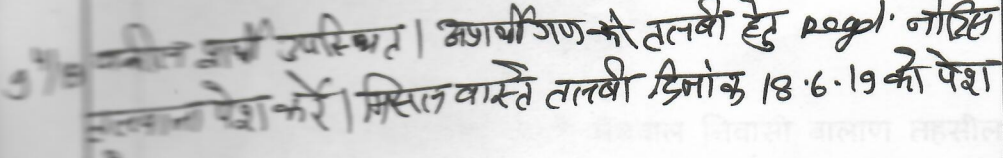 वकील प्रार्थी उपस्थित। अप्रार्थीगण को तलबी हेतु Regd. नोटिस
तलबाना पेश करें। मिसल वास्ते तलबी दिनांक 18.6.19 को पेश